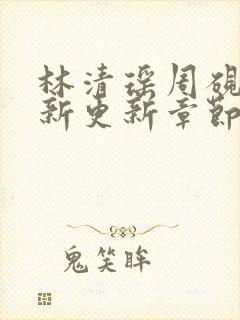 林清瑶周砚
新更新章节
鬼笑眸